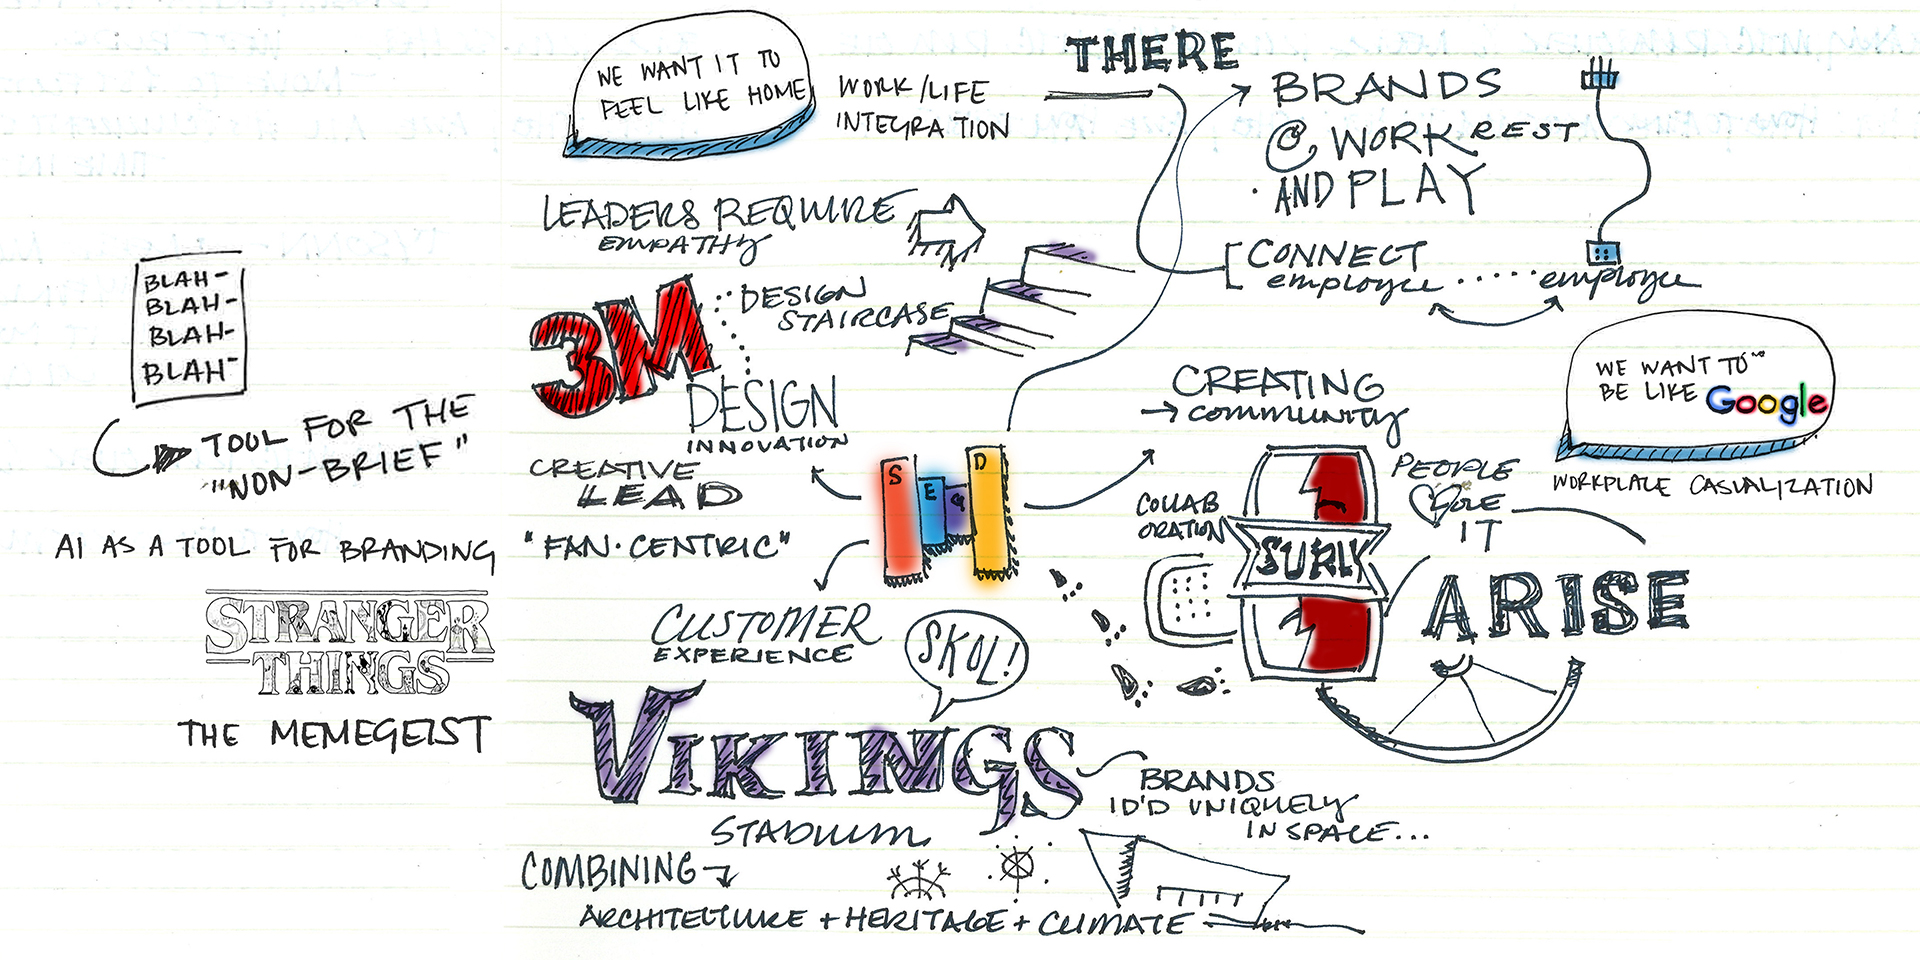 WE WANT IT TO
FEEL LIKE HOME
WORK/LIFE
INTEGRATION
THERE
BRANDS
@ WORK REST
AND PLAY
LEADERS REQUIRE
EMPATHY
CONNECT
employee ..... employee
BLAH-
BLAH-
BLAH-
BLAH-
TOOL FOR THE
"NON-BRIEF"
3M
DESIGN
STAIRCASE
DESIGN
INNOVATION
CREATING
→ community
WE WANT TO
BE LIKE Google
WORKPLACE CASUALIZATION
CREATIVE
LEAD
"FAN·CENTRIC"
S
E
G
D
COLLAB
ORATION
SURLY
PEOPLE
LOVE
IT
ARISE
AI AS A TOOL FOR BRANDING
STRANGER
THINGS
THE MEMEGEIST
CUSTOMER
EXPERIENCE
SKOL!
VIKINGS
STADIUM
BRANDS
ID'D UNIQUELY
IN SPACE...
COMBINING
ARCHITECTURE + HERITAGE + CLIMATE